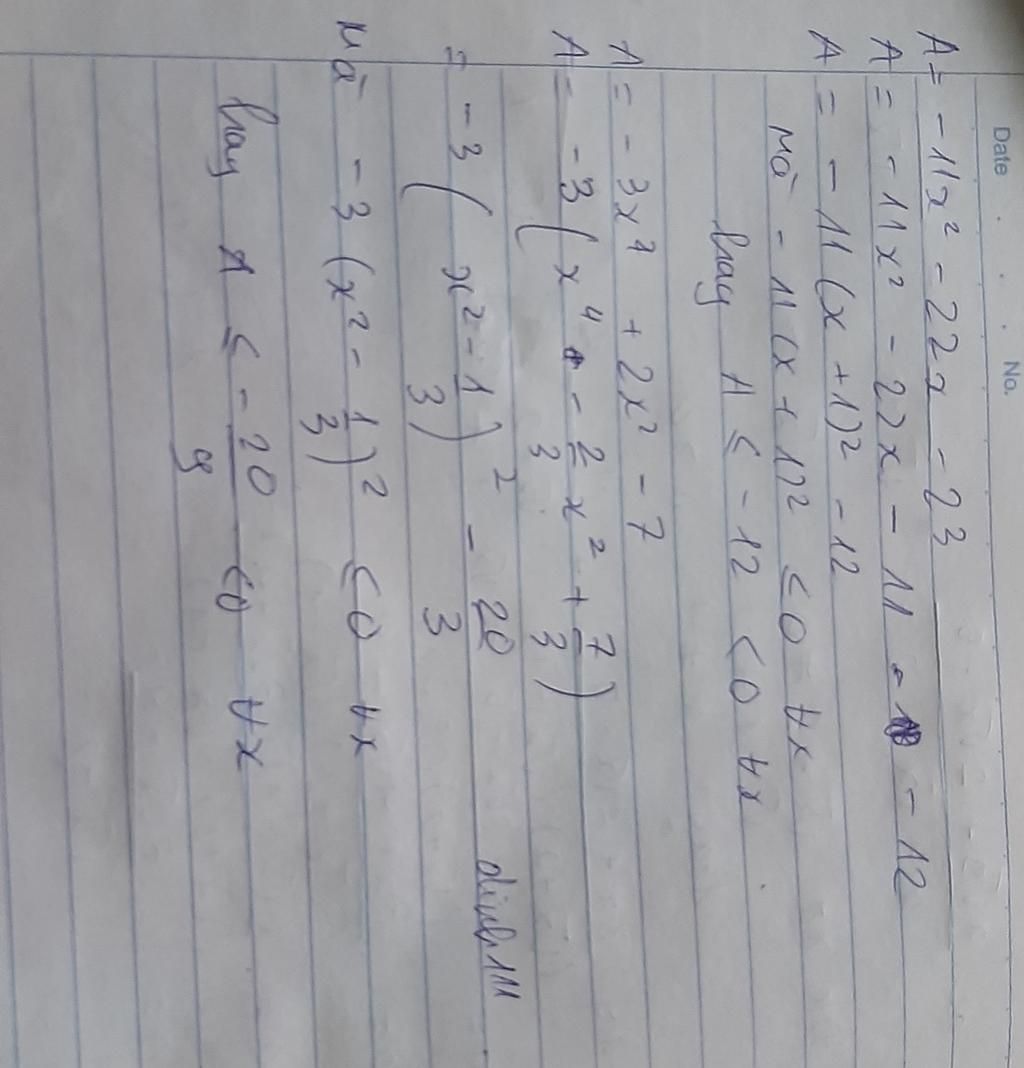 Date . . . No.
A = -11x² - 22x - 23
A = -11x² - 22x - 11 - 12
A = -11(x + 1)² - 12
mà -11(x + 1)² ≤ 0 ∀x
hay A ≤ -12 < 0 ∀x
A = -3x⁴ + 2x² - 7
A = -3(x⁴ - 2/3 x² + 7/3)
= -3(x² - 1/3)² - 20/3
mà -3(x² - 1/3)² ≤ 0 ∀x
hay A ≤ -20/9 < 0 ∀x